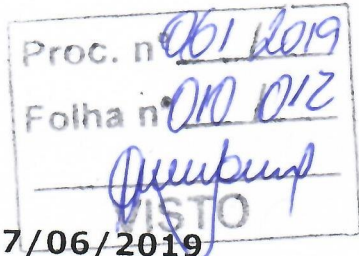 Proc. nº 061 / 2019
Folha nº 010 / 012
VISTO
7/06/2019